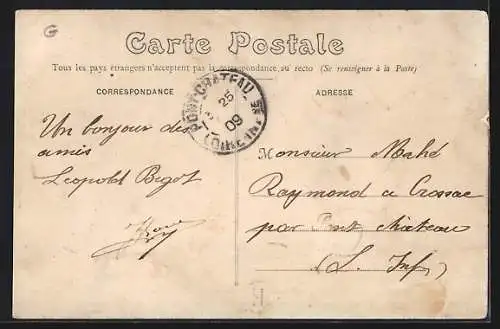 G
Carte Postale
Tous les pays étrangers n'acceptent pas la correspondance au recto (Se renseigner à la Poste)
CORRESPONDANCE
ADRESSE
PONTCHATEAU
25
09
LOIRE-INF RE
Un bonjour des
amis
Leopold Bigot
Monsieur Mahé
Raymond a Crossac
par Pont château
(L. Inf)